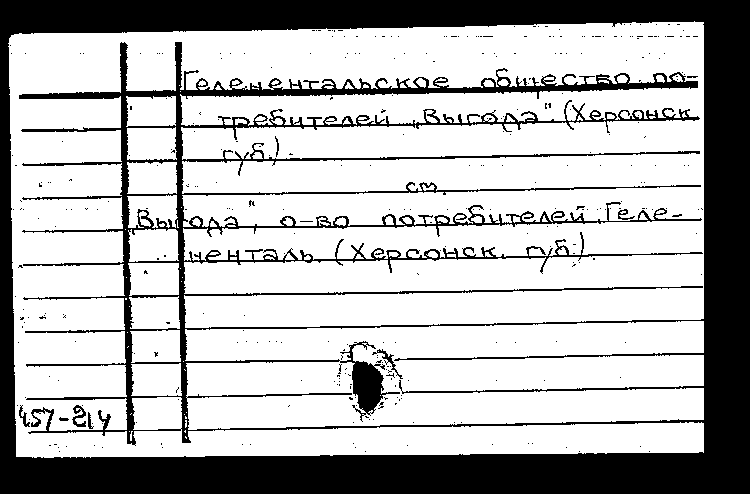 Геленентальское общество по-
требителей „Выгода" (Херсонск.
губ.).
см.
„Выгода", о-во потребителей Геле-
ненталь. (Херсонск. губ.)
457-214